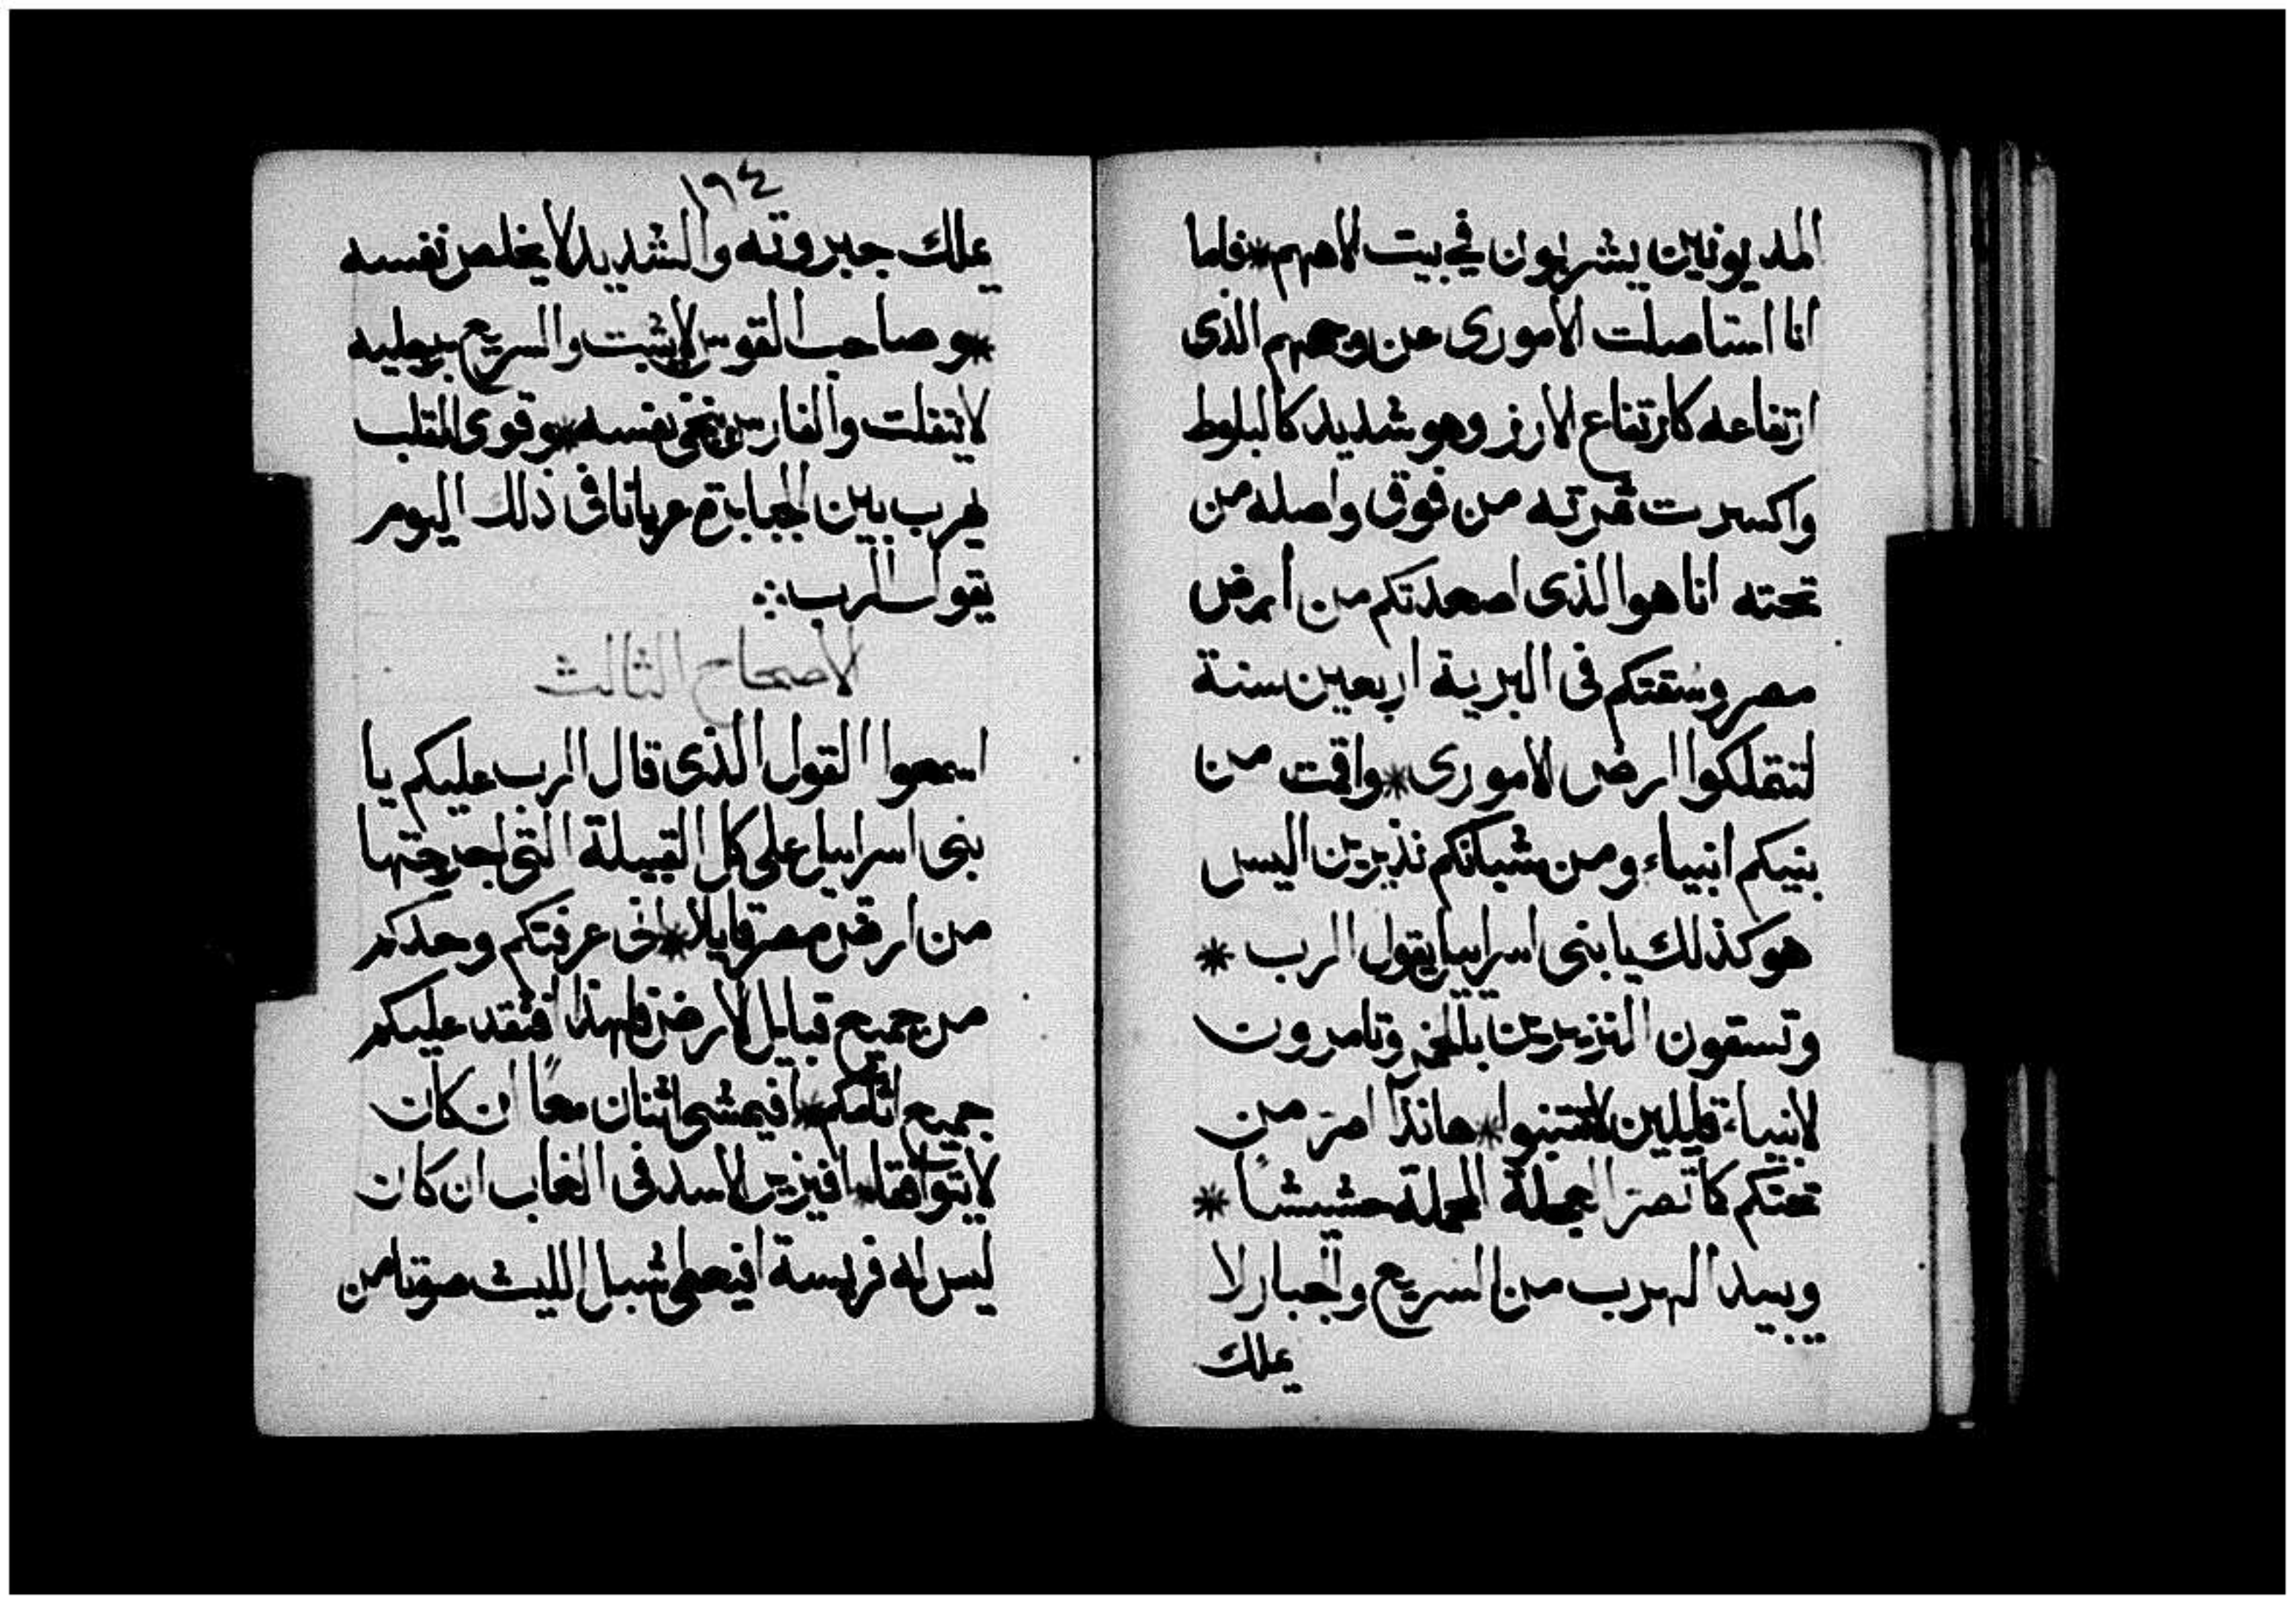 المديونين يشربون في بيت الاههم * فاما
انا استاصلت الاموري عن وجههم الذي
ارتفاعه كارتفاع الارز وهو شديد كالبلوط
واكسرت ثمرته من فوق واصله من
تحته انا هو الذي اصعدتكم من ارض
مصر وسقتكم في البرية اربعين سنة
لتتملكوا ارض الاموري * واقمت من
بنيكم انبياء ومن شبانكم نذيرين اليس
هو كذلك يا بني اسراييل يقول الرب *
وتسقون النزيرين بالخمر وتامرون
لانبياء قايلين لا تتنبوا * هانذا اصر من
تحتكم كما تصر العجلة المحملة حشيشا *
ويبيد الهرب من السريع والجبار لا
يملك
١٩٤
يملك جبروته والشديد لا يخلص نفسه
* وصاحب القوس لا يثبت والسريع برجليه
لا يتفلت والفارس ينجي نفسه * وقوي القلب
يهرب بين الجبابرة عريانا في ذلك اليوم
يقول الرب
الاصحاح الثالث
اسمعوا القول الذي قال الرب عليكم يا
بني اسراييل على كل القبيلة التي اخرجتها
من ارض مصر قايلا * اني عرفتكم وحدكم
من جميع قبايل الارض فلهذا افتقد عليكم
جميع اثامكم * افيمشي اثنان معًا ان كان
لا يتوافقا * افيزير الاسد في الغاب ان كان
ليس له فريسة افيعطي شبل الليث صوتا من